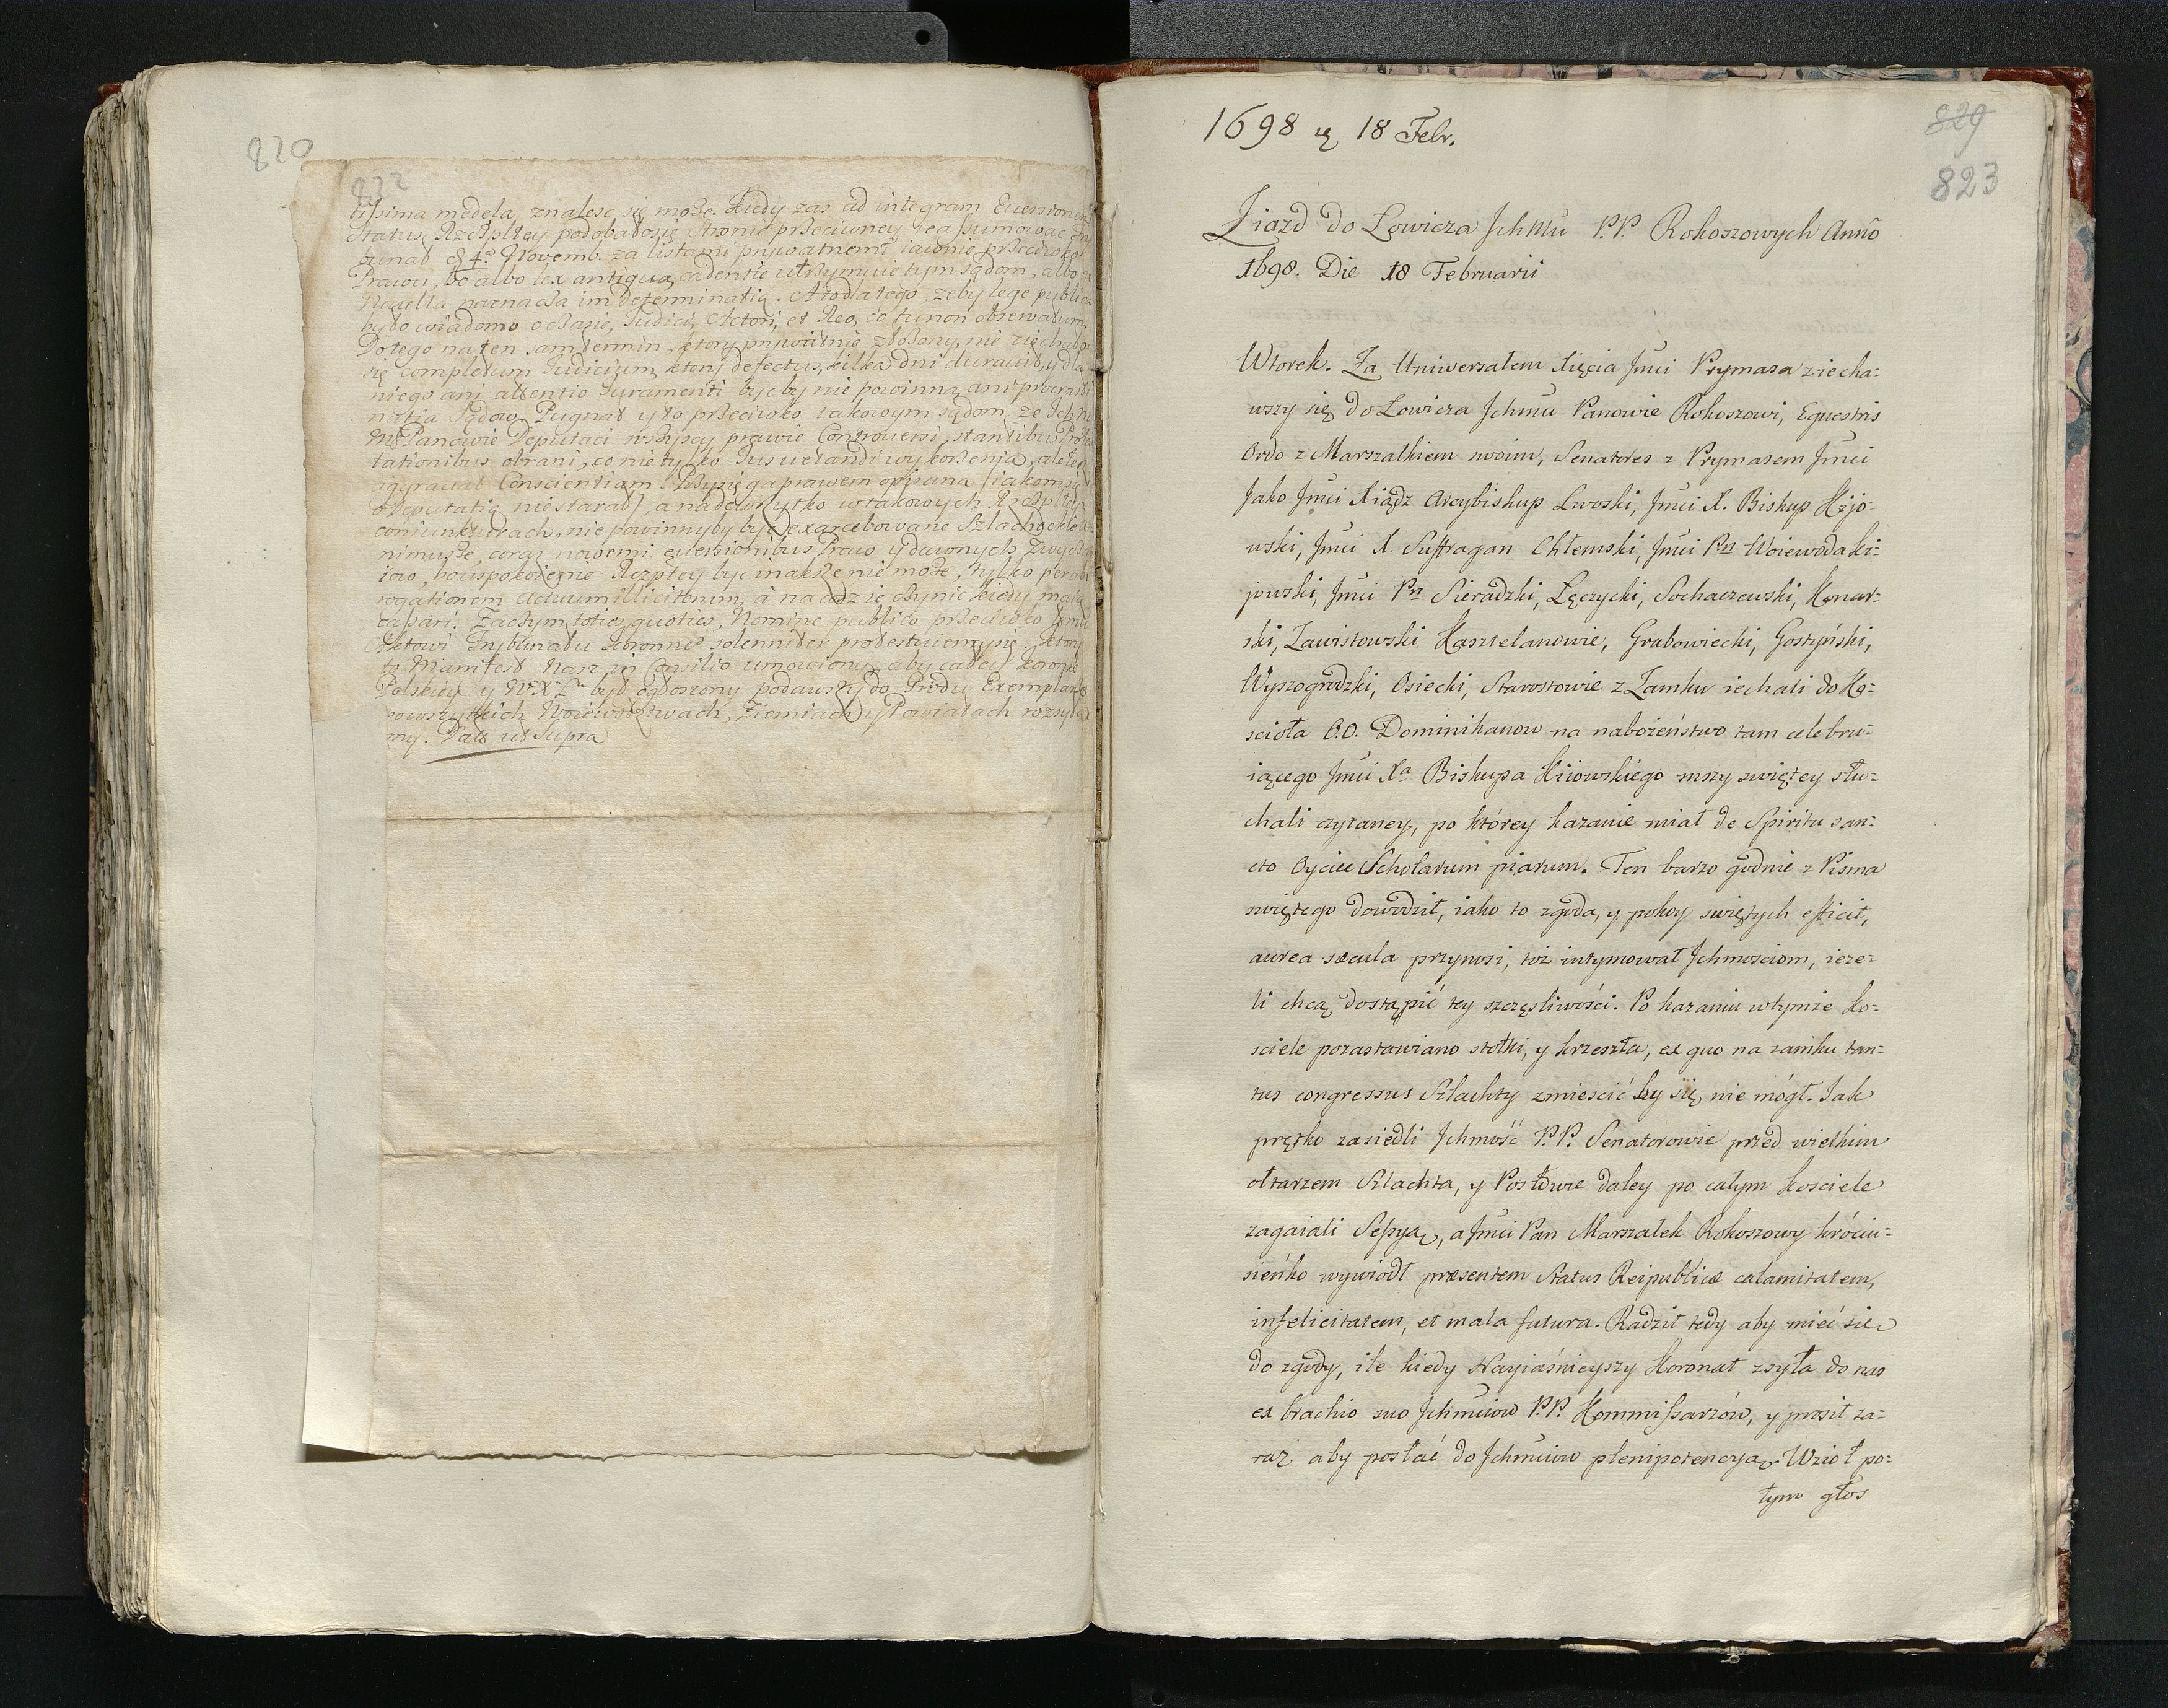 820
822
tissima medela znalesc się może. Kiedy zas ad integram Euersionem
status Rzeczpltey podobało się Stronie przeciwney reassumować
bunał 4a Novemb. za listami prywatnemi iawnie przeciwko
Prawu, bo albo lex antiqua, cadentie utrzymuie tym sądom, albo
Novella naznacza im determinatią. A to dla tego, żeby lege publica
było wiadomo o czasie, Judici, Actori, et Reo, co tu non observatum.
Do tego na ten sam termin, ktory prywatnie złożony, nie ziechało
się completum Judicium, ktory defectus, kilka dni durawił, y dla
niego ani attentio Juramenti być by nie powinna, ani procrasti
natia Sądow. Pugnat y to przeciwko takowym sądom, ze Ich
Mć Panowie Deputaci wszyscy prawie Controversi, stantibus Prote
tationibus obrani, co nie tylko Jus vetandi wykorzenia, ale ten
aggravat Conscientiam Przysięga prawem opisana /: iakom się
o Deputatią nie starał /, a nadewszytko w takowych Rzeczpltey
coniuncturach, nie powinnyby być exacerbowane Szlacheckie A
nimusze, coraz nowemi euersionibus Praw y dawnych Zwycza
iow, bo uspokoienie Rzeczpltey być inaksze nie może, tylko per ab
rogationem actuum illicitorum, a na co się czynić kiedy maią
cassari. Zaczym toties quoties, Nomine publico przeciwko temu
Aktowi Trybunału Koronneo solenniter protestuiemy się, ktory
to Manifest Nasz in Consilio umowiony, aby całey Koronie
Polskiey y W.X.L. był ogłoszony podawszy do Grodu Exemplarze
powszytkich Woiewodztwach, Ziemiach y Powiatach rozsyła
my. Datt ut Supra
1698 d. 18 Febr.
829
823
Ziazd do Łowicza Ichmů P.P. Rokoszowych Anno
1698. Die 18 Februarii
Wtorek. Za Uniwersałem Xięcia Jmći Prymasa ziecha=
wszy się do Łowicza Ichmů Panowie Rokoszowi, Equestris
Ordo z Marszałkiem swoim, Senatores z Prymasem Jmći
Jako Jmći Xiądz Arcybiskup Lwoski, Jmći X. Biskup Kijo=
wski, Jmći X. Suffragan Chełmski, Jmći Pn Woiewoda ki=
jowski, Jmći Pn Sieradzki, Łęczycki, Sochaczewski, Konar=
ski, Zawistowski Kasztelanowie, Grabowiecki, Gostyński,
Wyszogrodzki, Osiecki, Starostowie z Zamku iechali do Ko=
scioła O.O. Dominikanow na nabożeństwo tam celebru=
iącego Jmći Xa Biskupa Kiiowskiego mszy swiętey słu=
chali czytaney, po którey kazanie miał de Spiritu san=
cto Oyciec Scholarum piarum. Ten barzo godnie z Pisma
swiętego dowodził, iako to zgoda, y pokoy swiętych efficit,
aurea sæcula przynosi, toż intymował Ichmosciom, ieze=
li chcą dostąpić tey szczęsliwości. Po kazaniu w tymże Ko=
sciele pozastawiano stołki, y krzeszła, ex quo na zamku tan=
tus congressus Szlachty zmiescić by się nie mógł. Jak
prętko zasiedli Ichmość P.P. Senatorowie przed wielkim
ołtarzem Szlachta, y Posłowie daley po całym kosciele
zagaiali Sessyą, a Jmći Pan Marszałek Rokoszowy króciu=
sieńko wywiodł præsentem Status Reipublicæ calamitatem,
infelicitatem, et mala futura. Radził tedy aby mieć się
do zgody, ile kiedy Nayiaśnieyszy Koronat zsyła do nas
ex brachio suo Ichmciow P.P. Kommissarzów, y prosił za=
raz aby posłać do Ichmciow plenipotencyą. Wzioł po=
tym głos